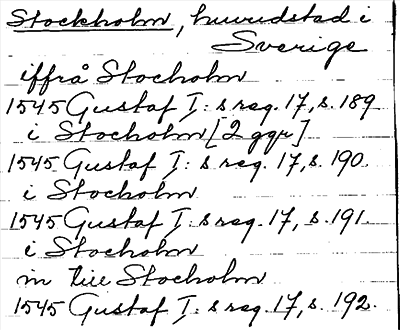 Stockholm, huvudstad i
Sverige
iffrå Stocholm
1545 Gustaf I: s reg. 17, s. 189
i Stocholm [2 ggr]
1545 Gustaf I: s reg. 17, s. 190.
i Stocholm
1545 Gustaf I: s reg. 17, s. 191.
i Stocholm
in till Stocholm
1545 Gustaf I: s reg. 17, s. 192.